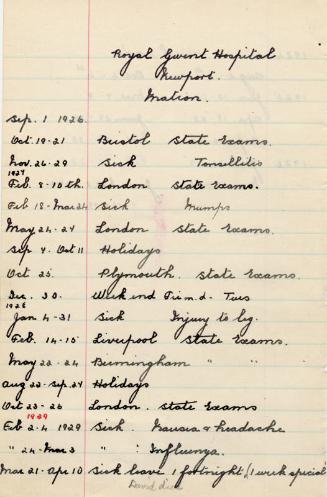 Royal Gwent Hospital
Newport.
Matron.
Sep. 1 1926.
Oct. 19-21 Bristol State Exams.
Nov. 26-29 Sick Tonsellitis
1927
Feb. 8-10th. London State Exams.
Feb 18-Mar 24 Sick Mumps
May 24-27 London State Exams.
Sep 4. Oct 11 Holidays
Oct 25. Plymouth. State Exams.
Dec. 30. Week end Fri m.d. - Tues
1928
Jan 4-31 Sick Injury to leg.
Feb. 14-15 Liverpool State Exams.
May 22-24 Birmingham " "
Aug 22-Sep. 24 Holidays
Oct 23-26 London. State Exams
1929
Feb 2-4 1929 Sick. Nausea & headache
" 24-Mar 3 " : Influenza.
Mar 21-Apr 10 Sick leave 1 fortnight (1 week special
David died